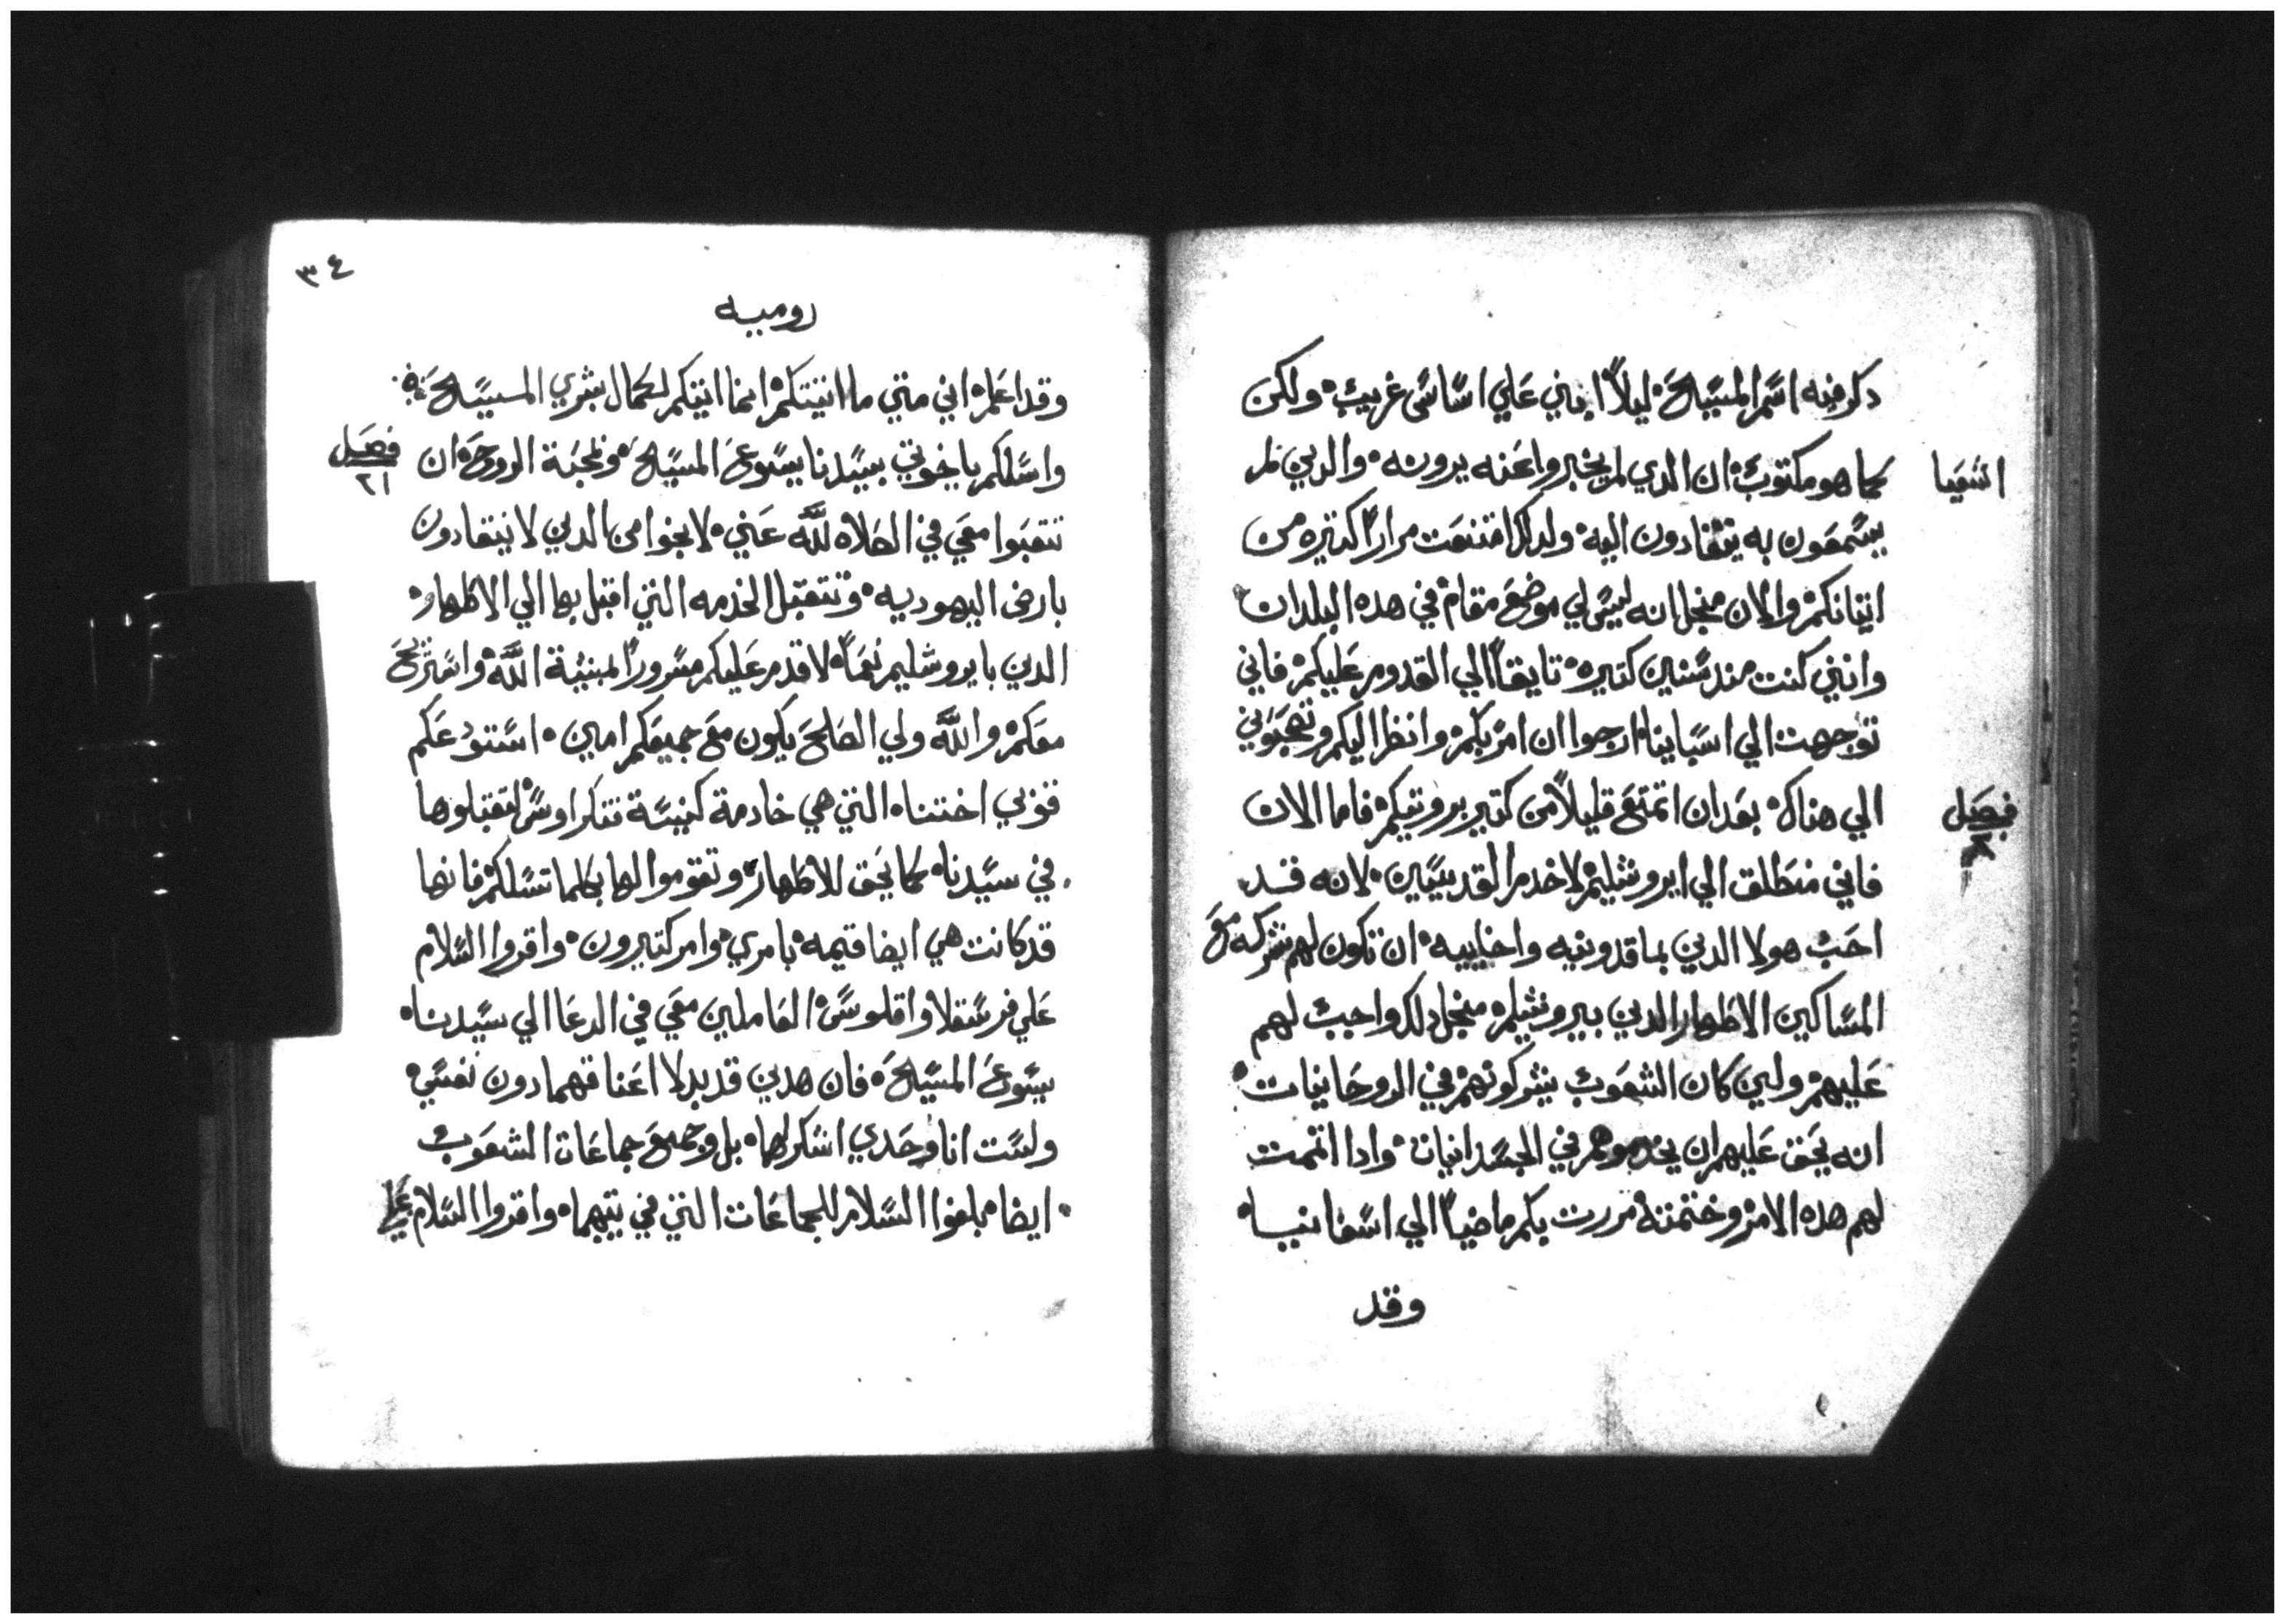 دكر فيه اسم المسيح ليلا ابني علي اساس غريب ولكن
اشعيا
كما هو مكتوب ان الدي لم يخبروا عنه يرونه والدين لم
يسمعون به ينقادون اليه ولدلك امتنعت مرارا كتيره من
اتيانكم والان منجل انه ليس لي موضع مقام في هده البلدان
وانني كنت مند سنين كتيره تايقا الي القدوم عليكم فاني
توجهت الي اسبانيا ارجوا ان امر بكم وانظر اليكم وتصحبوني
الي هناك بعد ان اتمتع قليلا من كتير برويتكم فاما الان
فصل
فاني منطلق الي ايروشليم لاخدم القديسين لانه قد
احب هولا الدين بماقدونيه واخاييه ان تكون لهم شركه مع
المساكين الاطهار الدين بيروشليم منجل دلك واجب لهم
عليهم ولين كان الشعوب يشركونهم في الروحانيات
انه يحق عليهم ان يخدموهم في الجسدانيات وادا اتممت
لهم هده الامر وختمته مررت بكم ماضيا الي اسفانيا
وقد
٣٤
روميه
وقد اعلم اني متي ما اتيتكم انما اتيتكم لكمال بشري المسيح
فصل
٢١
واسلكم ياخوتي بسيدنا يسوع المسيح وبمحبة الروح ان
تتعبوا معي في الصلاه لله عني لانجوا من الدين لا ينقادون
بارض اليهوديه وتتقبل الخدمه التي اقبل بها الي الاطهار
الدين بايروشليم نعما لاقدم عليكم مسرورا لمشية الله واستريح
معكم والله ولي الصلح يكون مع جميعكم امين استودعكم
فوبي اختنا التي هي خادمة كنيسة قنكراوس لتقبلوها
في سيدنا كما يحق للاطهار وتقوموا لها بكلما تسلكم فانها
قد كانت هي ايضا قيمه بامري وامر كتيرون واقروا السلام
علي فرسقلا واقلوس العاملين معي في الدعا الي سيدنا
يسوع المسيح فان هدين قد بدلا اعناقهما دون نفسي
ولست انا وحدي اشكر لهما بل وجميع جماعات الشعوب
ايضا بلغوا السلام للجماعات التي في بيتهما واقروا السلام علي